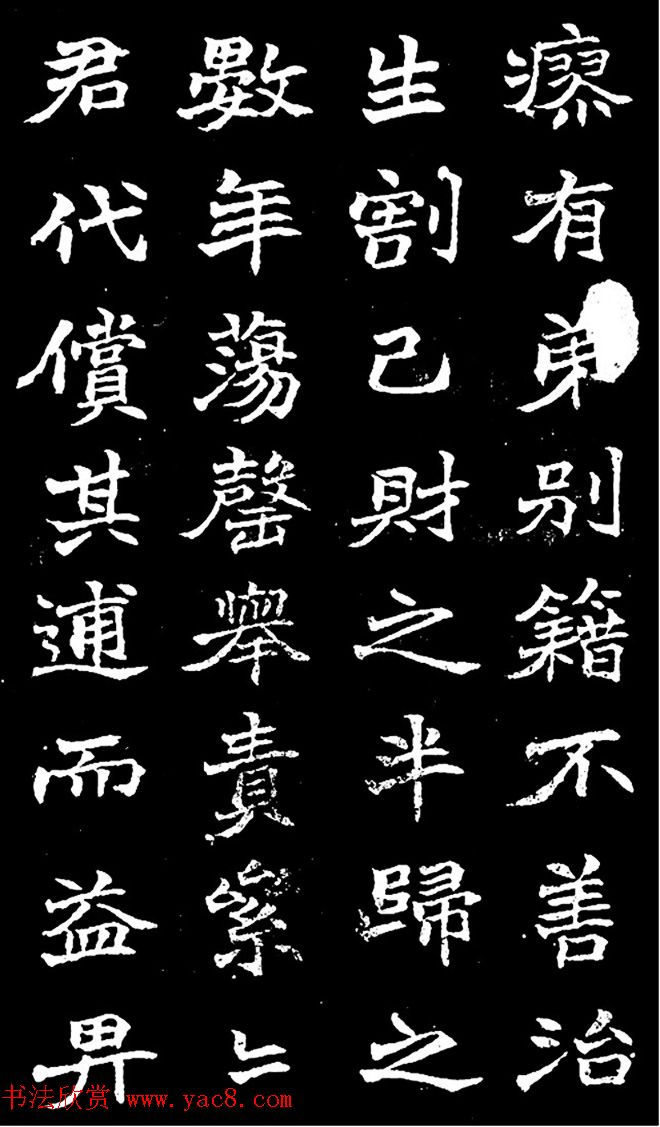 瘳有弟别籍不善治
生割己財之半歸之
數年蕩罄舉責絫〻
君代償其逋而益畀
书法欣赏 www.yac8.com